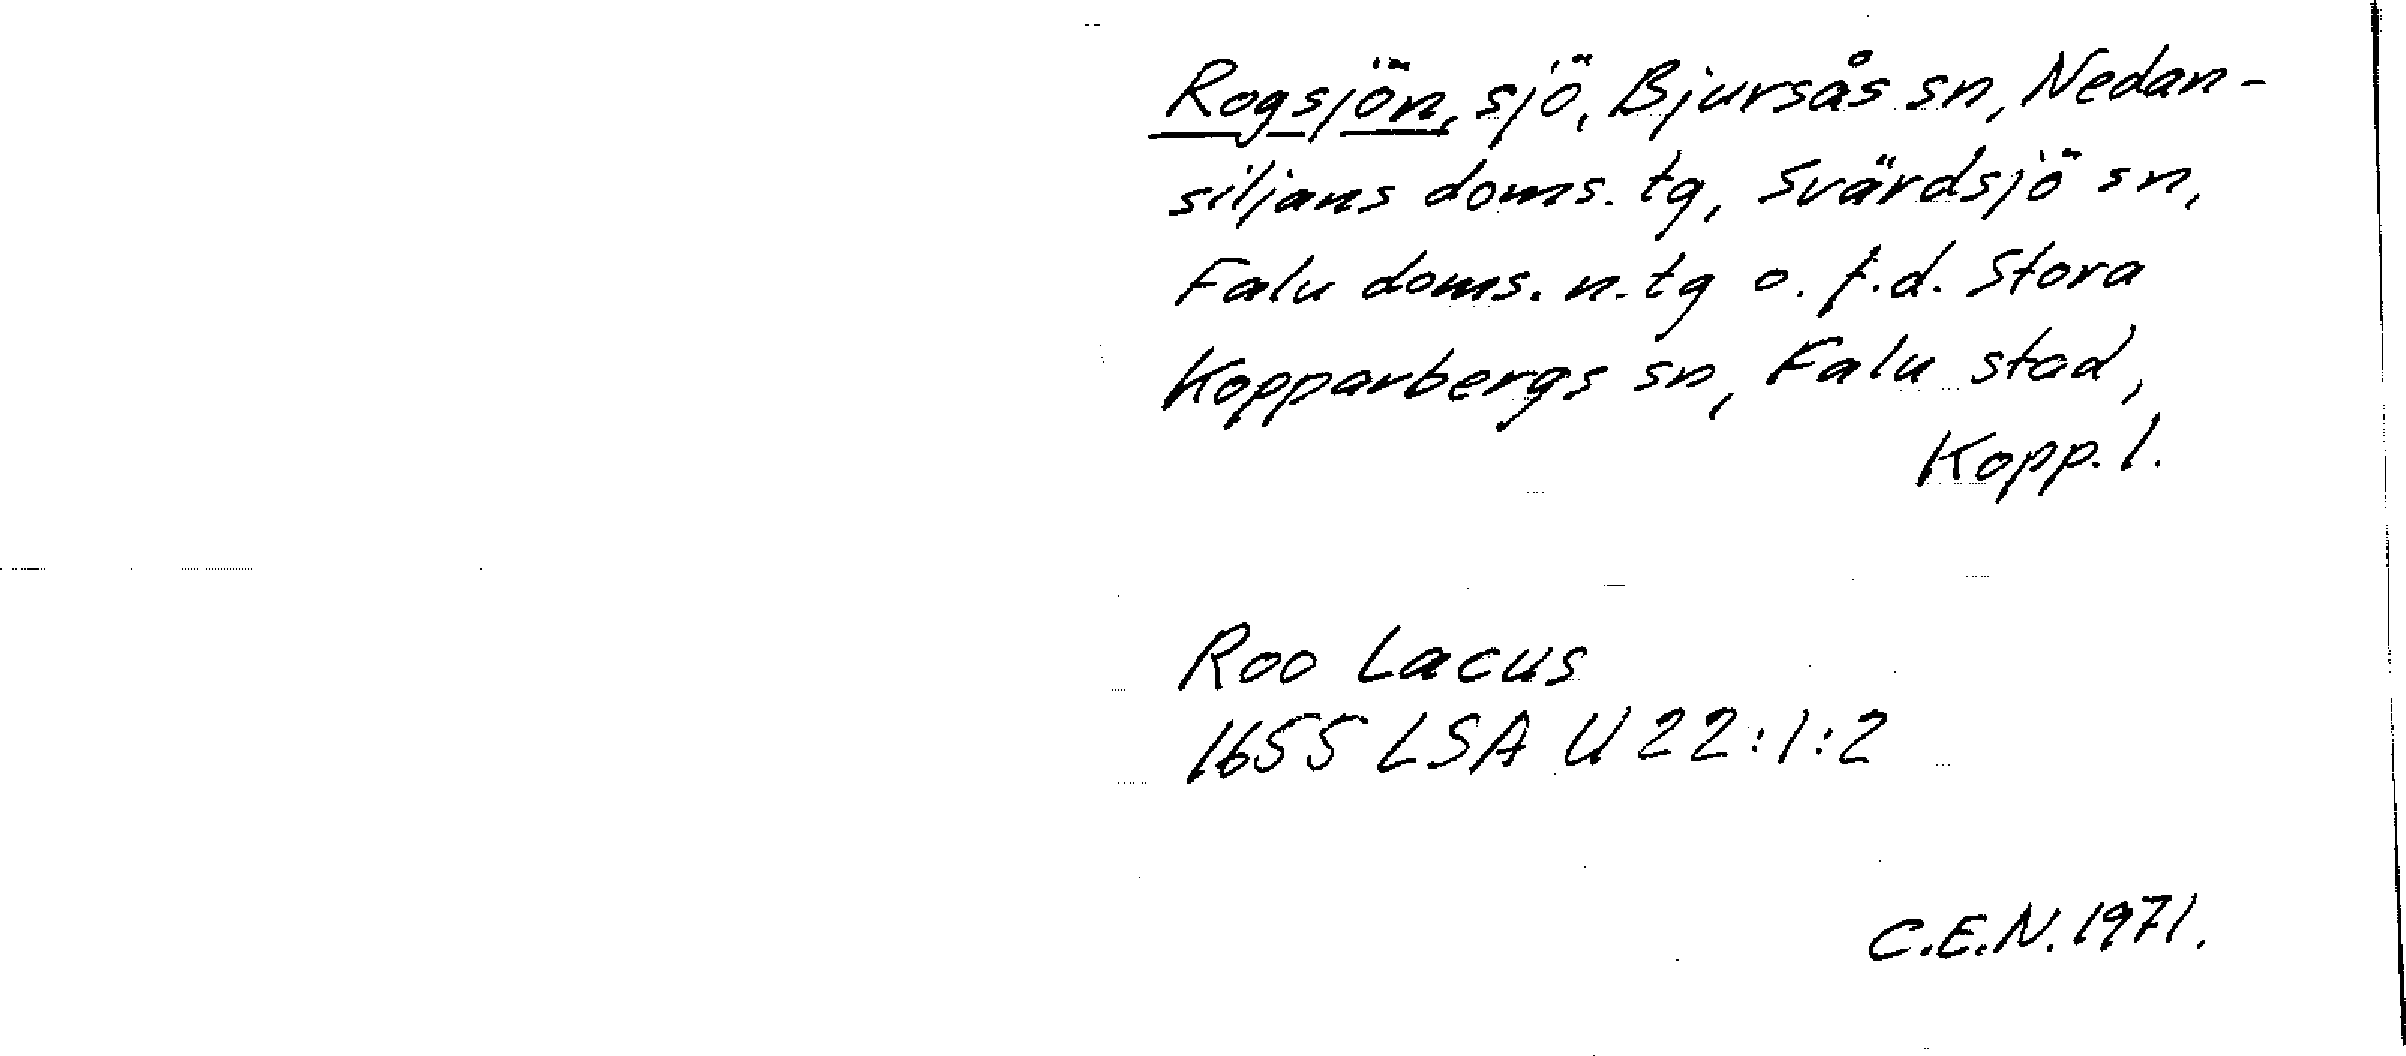 Rogsjön, sjö, Bjursås sn, Nedan-
siljans doms. tg, Svärdsjö sn,
Falu doms. n. tg o. f.d. Stora
Kopparbergs sn, Falu stad,
Kopp. l.
Roo Lacus
1655 LSA U 22:1:2
C.E.N. 1971.